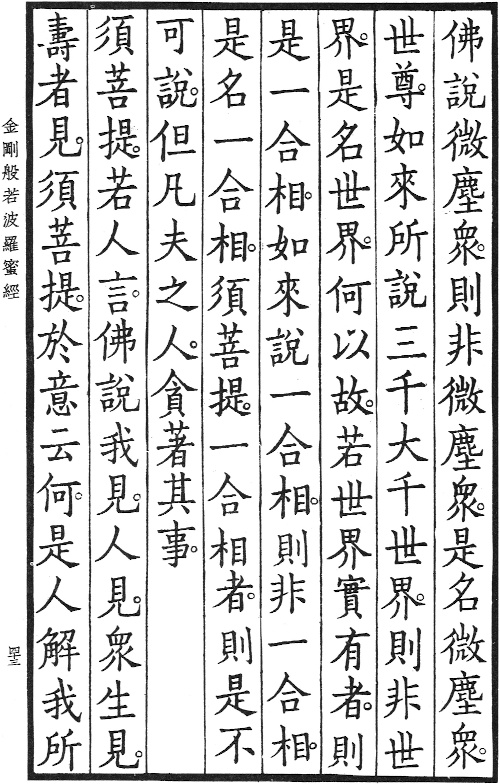 佛說微塵眾。則非微塵眾。是名微塵眾。
世尊。如來所說三千大千世界。則非世
界。是名世界。何以故。若世界實有者。則
是一合相。如來說一合相。則非一合相。
是名一合相。須菩提。一合相者。則是不
可說。但凡夫之人。貪著其事。
須菩提。若人言。佛說我見。人見。眾生見。
壽者見。須菩提。於意云何。是人解我所
金剛般若波羅蜜經
四三